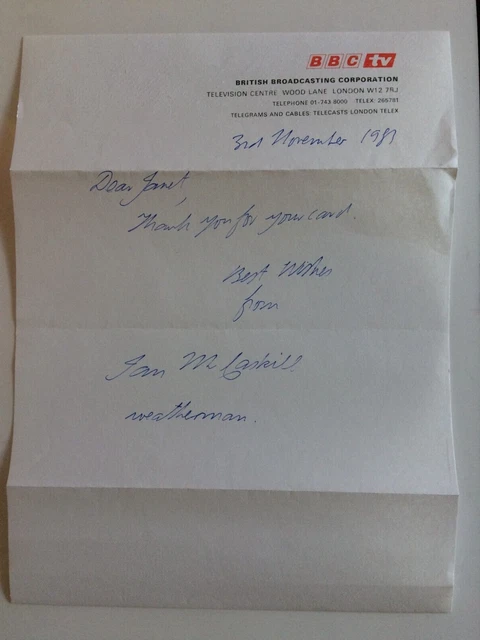 BBC tv
BRITISH BROADCASTING CORPORATION
TELEVISION CENTRE WOOD LANE LONDON W12 7RJ
TELEPHONE 01-743 8000 TELEX: 265781
TELEGRAMS AND CABLES: TELECASTS LONDON TELEX
3rd November 1983
Dear Janet,
Thank you for your card.
Best Wishes
from
Ian McCaskill
weatherman.